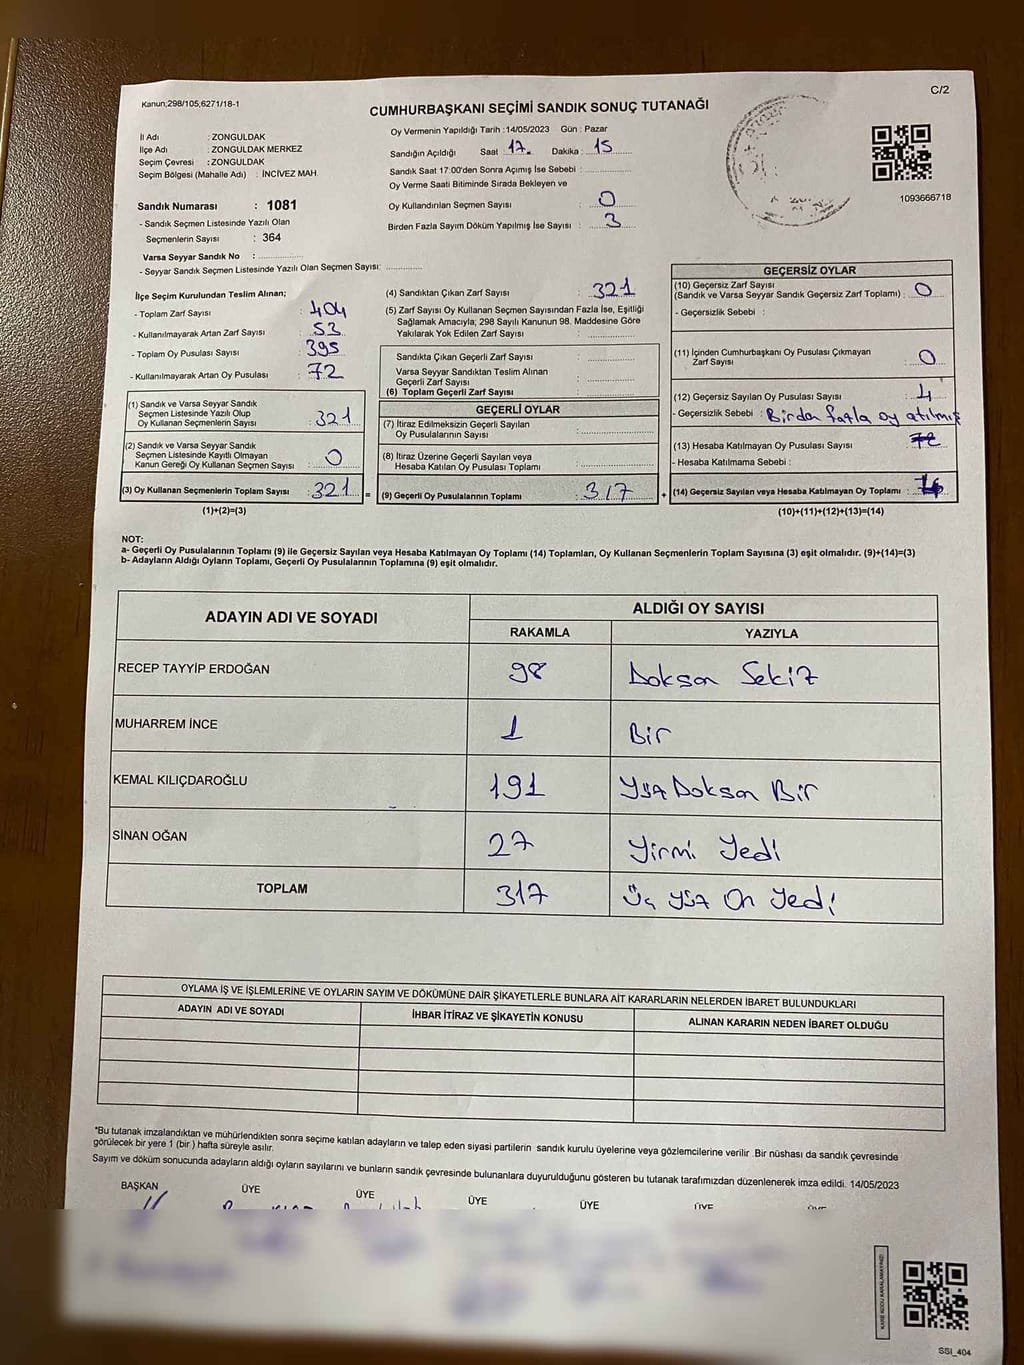 Kanun;298/105,6271/18-1
C/2
CUMHURBAŞKANI SEÇİMİ SANDIK SONUÇ TUTANAĞI
İl Adı : ZONGULDAK
İlçe Adı : ZONGULDAK MERKEZ
Seçim Çevresi : ZONGULDAK
Seçim Bölgesi (Mahalle Adı) : İNCİVEZ MAH.
Sandık Numarası : 1081
- Sandık Seçmen Listesinde Yazılı Olan
Seçmenlerin Sayısı : 364
Varsa Seyyar Sandık No :
- Seyyar Sandık Seçmen Listesinde Yazılı Olan Seçmen Sayısı:
Oy Vermenin Yapıldığı Tarih :14/05/2023 Gün : Pazar
Sandığın Açıldığı Saat 17. Dakika : 15
Sandık Saat 17:00'den Sonra Açımış İse Sebebi :
Oy Verme Saati Bitiminde Sırada Bekleyen ve
Oy Kullandırılan Seçmen Sayısı : 0
Birden Fazla Sayım Döküm Yapılmış İse Sayısı : 3
1093666718
İlçe Seçim Kurulundan Teslim Alınan;
- Toplam Zarf Sayısı : 404
- Kullanılmayarak Artan Zarf Sayısı : 53
- Toplam Oy Pusulası Sayısı : 395
- Kullanılmayarak Artan Oy Pusulası : 72
(1) Sandık ve Varsa Seyyar Sandık
Seçmen Listesinde Yazılı Olup
Oy Kullanan Seçmenlerin Sayısı : 321
(2) Sandık ve Varsa Seyyar Sandık
Seçmen Listesinde Kayıtlı Olmayan
Kanun Gereği Oy Kullanan Seçmen Sayısı : 0
(3) Oy Kullanan Seçmenlerin Toplam Sayısı : 321 =
(1)+(2)=(3)
(4) Sandıktan Çıkan Zarf Sayısı : 321
(5) Zarf Sayısı Oy Kullanan Seçmen Sayısından Fazla İse, Eşitliği
Sağlamak Amacıyla; 298 Sayılı Kanunun 98. Maddesine Göre
Yakılarak Yok Edilen Zarf Sayısı :
Sandıkta Çıkan Geçerli Zarf Sayısı :
Varsa Seyyar Sandıktan Teslim Alınan
Geçerli Zarf Sayısı :
(6) Toplam Geçerli Zarf Sayısı :
GEÇERLİ OYLAR
(7) İtiraz Edilmeksizin Geçerli Sayılan
Oy Pusulalarının Sayısı :
(8) İtiraz Üzerine Geçerli Sayılan veya
Hesaba Katılan Oy Pusulası Toplamı :
(9) Geçerli Oy Pusulalarının Toplamı : 317 +
GEÇERSİZ OYLAR
(10) Geçersiz Zarf Sayısı
(Sandık ve Varsa Seyyar Sandık Geçersiz Zarf Toplamı) : 0
- Geçersizlik Sebebi :
(11) İçinden Cumhurbaşkanı Oy Pusulası Çıkmayan
Zarf Sayısı : 0
(12) Geçersiz Sayılan Oy Pusulası Sayısı : 4
- Geçersizlik Sebebi : Birden fazla oy atılmış
(13) Hesaba Katılmayan Oy Pusulası Sayısı :
- Hesaba Katılmama Sebebi :
(14) Geçersiz Sayılan veya Hesaba Katılmayan Oy Toplamı :
(10)+(11)+(12)+(13)=(14)
NOT:
a- Geçerli Oy Pusulalarının Toplamı (9) ile Geçersiz Sayılan veya Hesaba Katılmayan Oy Toplamı (14) Toplamları, Oy Kullanan Seçmenlerin Toplam Sayısına (3) eşit olmalıdır. (9)+(14)=(3)
b- Adayların Aldığı Oyların Toplamı, Geçerli Oy Pusulalarının Toplamına (9) eşit olmalıdır.
ADAYIN ADI VE SOYADI ALDIĞI OY SAYISI
RAKAMLA YAZIYLA
RECEP TAYYİP ERDOĞAN 98 Doksan Sekiz
MUHARREM İNCE 1 Bir
KEMAL KILIÇDAROĞLU 191 Yüz Doksan Bir
SİNAN OĞAN 27 Yirmi Yedi
TOPLAM 317 Üç Yüz On Yedi
OYLAMA İŞ VE İŞLEMLERİNE VE OYLARIN SAYIM VE DÖKÜMÜNE DAİR ŞİKAYETLERLE BUNLARA AİT KARARLARIN NELERDEN İBARET BULUNDUKLARI
ADAYIN ADI VE SOYADI İHBAR İTİRAZ VE ŞİKAYETİN KONUSU ALINAN KARARIN NEDEN İBARET OLDUĞU
*Bu tutanak imzalandıktan ve mühürlendikten sonra seçime katılan adayların ve talep eden siyasi partilerin sandık kurulu üyelerine veya gözlemcilerine verilir .Bir nüshası da sandık çevresinde
görülecek bir yere 1 (bir ) hafta süreyle asılır.
Sayım ve döküm sonucunda adayların aldığı oyların sayılarını ve bunların sandık çevresinde bulunanlara duyurulduğunu gösteren bu tutanak tarafımızdan düzenlenerek imza edildi. 14/05/2023
BAŞKAN ÜYE ÜYE ÜYE ÜYE ÜYE
KARE KODU KARALAMAYINIZ!
SSI_404